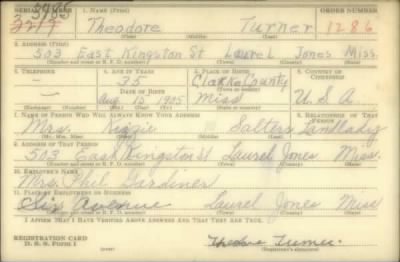 SERIAL NUMBER 1. NAME (Print) ORDER NUMBER
3785
3217 Theodore Turner 1286
(First) (Middle) (Last)
2. ADDRESS (Print)
503 East Kingston St Laurel Jones Miss.
(Number and street or R. F. D. number) (Town) (County) (State)
3. TELEPHONE 4. AGE IN YEARS 5. PLACE OF BIRTH 6. COUNTRY OF CITIZENSHIP
— 35 Clarke County
DATE OF BIRTH (Town or county)
— Aug 15 1905 Miss U.S.A
(Exchange) (Number) (Mo.) (Day) (Yr.) (State or country)
7. NAME OF PERSON WHO WILL ALWAYS KNOW YOUR ADDRESS 8. RELATIONSHIP OF THAT PERSON
Mrs. Salters Landlady
(Mr., Mrs., Miss) (First) (Middle) (Last)
9. ADDRESS OF THAT PERSON
503 East Kingston St Laurel Jones Miss.
(Number and street or R. F. D. number) (Town) (County) (State)
10. EMPLOYER'S NAME
Mrs. Phil Gardiner
11. PLACE OF EMPLOYMENT OR BUSINESS
Six Avenue Laurel Jones Miss
(Number and street or R. F. D. number) (Town) (County) (State)
I AFFIRM THAT I HAVE VERIFIED ABOVE ANSWERS AND THAT THEY ARE TRUE.
REGISTRATION CARD
D. S. S. FORM 1 Theodore Turner
(Registrant's signature)